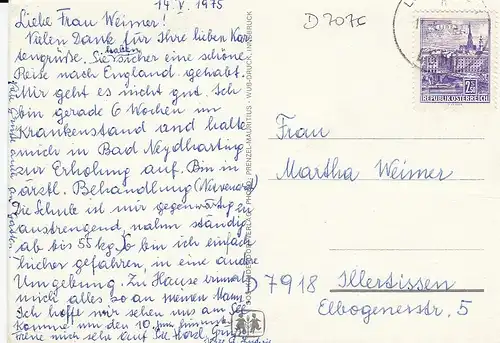 14. V. 1975
Liebe Frau Weimer!
Vielen Dank für Ihre lieben Kar-
tengrüße. Sie haben sicher eine schöne
Reise nach England gehabt.
Mir geht es nicht gut. Ich
bin gerade 6 Wochen im
Krankenstand und halte
mich in Bad Neydharting
zur Erholung auf. Bin in
ärztl. Behandlung
Die Schule ist mir gegenwärtig zu
anstrengend, nahm ständig
ab bis 55 kg. So bin ich einfach
hierher gefahren, in eine andere
Umgebung. Zu Hause erinnert
mich alles so an meinen Mann.
Ich hoffe wir sehen uns am
komme um den 10. Juni
freue mich sehr auf Sie. Herzl. Grüße
D 7075
REPUBLIK ÖSTERREICH
Frau
Martha Weimer
D 7918 Illertissen
Elbogenerstr. 5